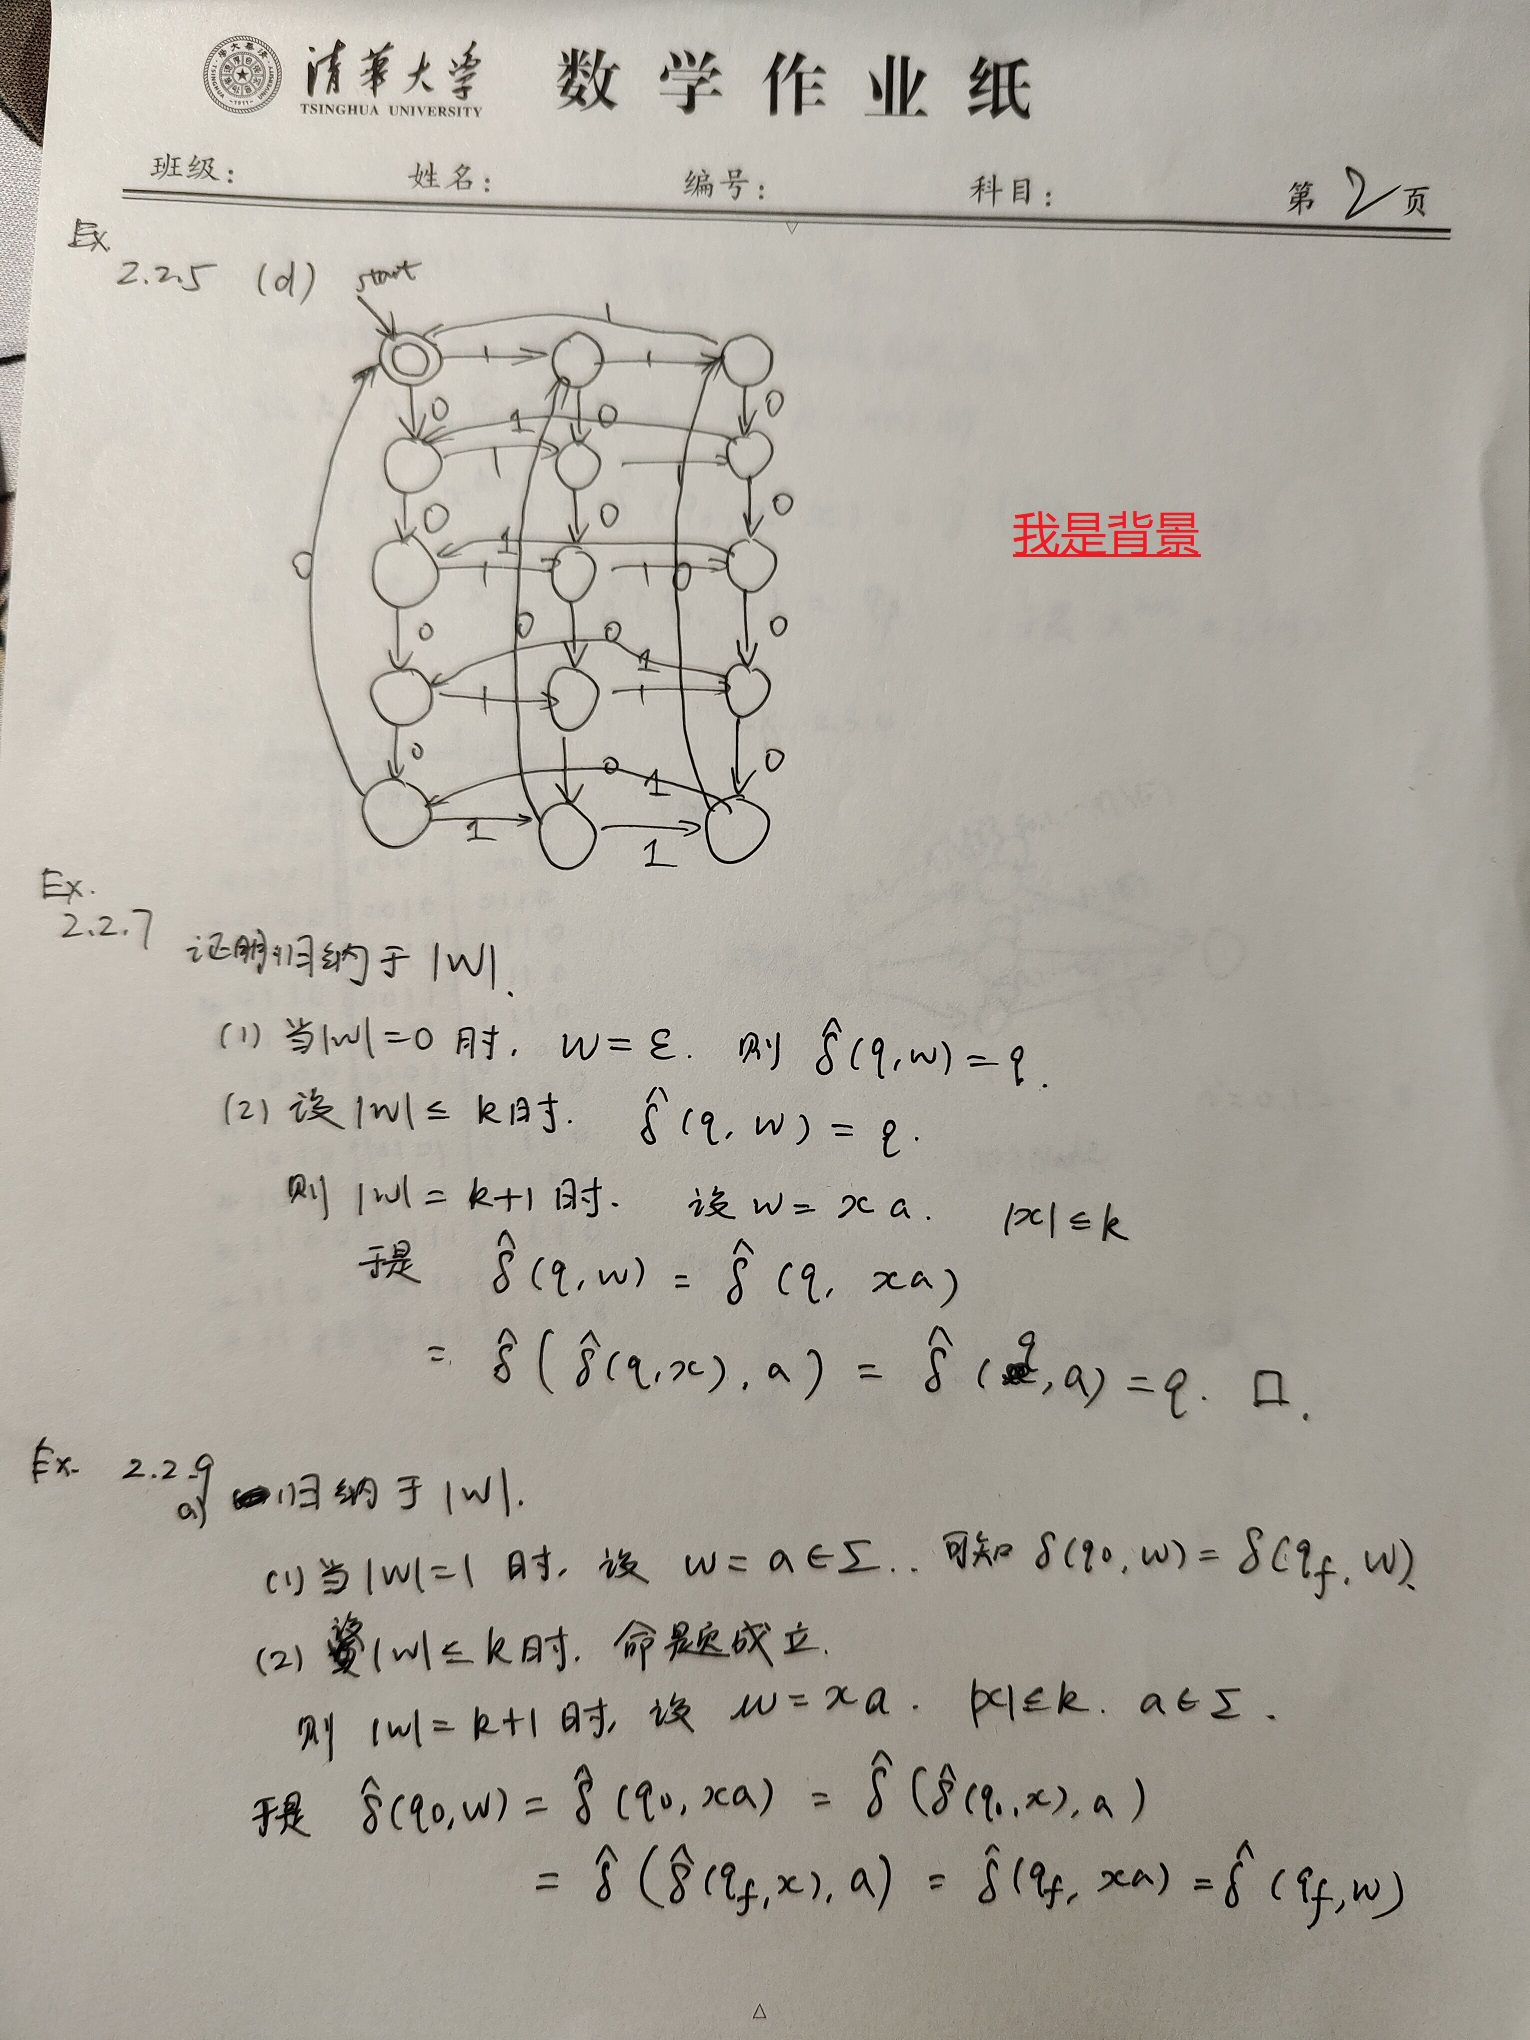 清华大学
TSINGHUA UNIVERSITY
数学作业纸
班级: 姓名: 编号: 科目: 第 2 页
Ex.
2.2.5 (d) start
1
1 1
0 0 0
1
1 1
0 0 0
1
1 1 0
0
0 0 0 0
1
1 1
0 0
0 1
1 1
我是背景
Ex.
2.2.7
证明归纳于 |w|.
(1) 当|w|=0 时. w=ε. 则 δ̂(q,w)=q.
(2) 设 |w|≤ k时. δ̂(q, w) = q.
则 |w| = k+1 时. 设 w = xa. |x|≤k
于是 δ̂(q,w) = δ̂(q, xa)
= δ̂(δ̂(q,x), a) = δ̂(q,a) = q. □.
Ex. 2.2.9
a) 归纳于 |w|.
(1) 当|w|=1 时, 设 w = a∈Σ.. 可知 δ(q0,w) = δ(qf, w).
(2) 设|w|≤k时. 命题成立.
则 |w| = k+1 时, 设 w = xa. |x|≤k. a∈Σ.
于是 δ̂(q0,w) = δ̂(q0,xa) = δ̂(δ̂(q0,x), a)
= δ̂(δ̂(qf,x), a) = δ̂(qf, xa) = δ̂(qf,w)